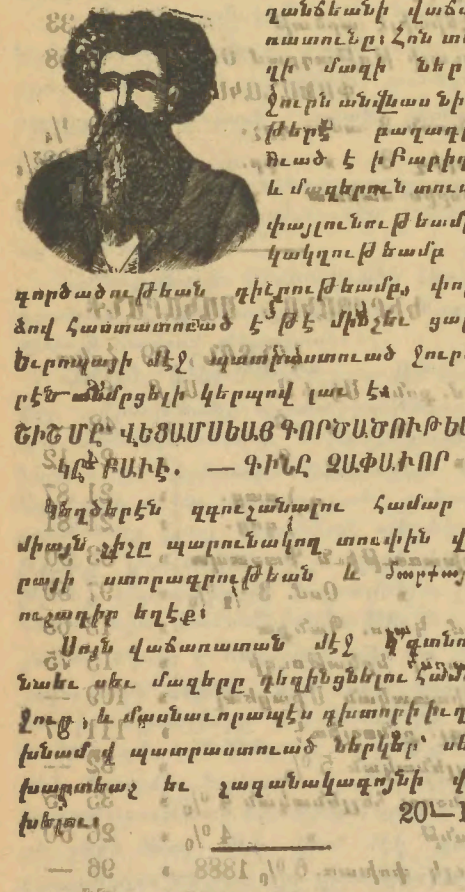 ղանճեանի վաճա
ռատունը։ Հոն տե
ղի մազի ներ
Ջուրն անվնաս նիւ
թերէ բաղադր
ուած է ի Բարիզ
և մազերուն տու
փայլունութեամբ
կակղութեամբ
գործածութեան դիւրութեամբ, փոր
ձով հաստատուած է թէ մինչեւ ցար
Եւրոպայի մէջ պատրաստուած ջուր
րէն անմրցելի կերպով լաւ է։
ՇԻՇ ՄԸ՝ ՎԵՑԱՄՍԵԱՅ ԳՈՐԾԱԾՈՒԹԵԱ
ԿԸ ԲԱՒԷ. — ԳԻՆԸ ՉԱՓԱՒՈՐ
Կեղծերէն զգուշանալու համար
միայն շիշը պարունակող տուփին վ
րայի ստորագրութեան և
ուշադիր եղէք։
Սոյն վաճառատան մէջ կը գտնու
նաեւ սեւ մազերը դեղինցնելու համար
Ջուր, և մասնաւորապէս գխտորի իւղ
խնամով պատրաստուած ներկեր՝ սե
խարտեաշ եւ շագանակագոյնի վ
խելու։
20—1